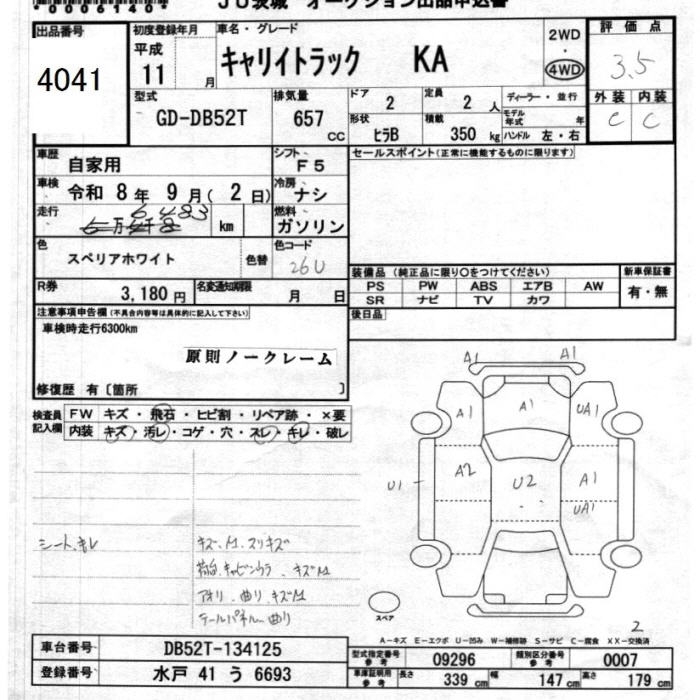 *0006140*
JU茨城 オークション出品申込書
出品番号
4041
初度登録年月
平成
11 月
車名・グレード
キャリイトラック KA
2WD
・
4WD
評価点
3.5
外装 内装
C C
型式
GD-DB52T
排気量
657 CC
ドア 2
定員 2 人
ディーラー・並行
形状 ヒラB
積載 350 kg
モデル年式 年
ハンドル 左・右
車歴
自家用
シフト
F5
セールスポイント(正常に機能するものに限ります)
車検
令和 8 年 9 月 ( 2 日)
冷房
ナシ
走行
6,483
km
燃料
ガソリン
色
スペリアホワイト
色替
色コード
26U
装備品(純正品に限り〇をつけてください)
新車保証書
PS PW ABS エアB AW
有・無
SR ナビ TV カワ
R券
3,180 円
名変通知期限
月 日
後日品
注意事項申告欄(不具合内容は具体的に記入して下さい)
車検時走行6300km
原則ノークレーム
修復歴 有〔箇所 〕
検査員記入欄
FW キズ・飛石・ヒビ割・リペア跡・×要
内装 キズ・汚レ・コゲ・穴・スレ・キレ・破レ
A1 A1
A1 A1 UA1
U1 A2 U2 A1
UA1
シート、キレ
キズ、A1、スリキズ
荷台、キャビンウラ、キズA1
アオリ 曲り キズA1
テールパネル 曲り
スペア
2
A-キズ E-エクボ U-凹み W-補修跡 S-サビ C-腐食 XX-交換済
車台番号
DB52T-134125
型式指定番号参考
09296
類別区分番号参考
0007
登録番号
水戸 41 う 6693
車庫証明用参考
長さ 339 cm
幅 147 cm
高さ 179 cm